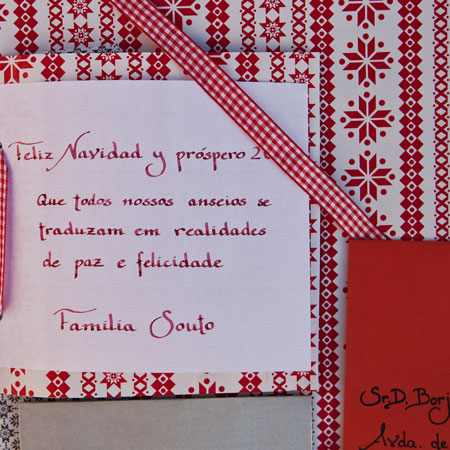 Feliz Navidad y próspero 2
Que todos nossos anseios se
traduzam em realidades
de paz e felicidade
Familia Souto
Sr.D. Borj
Avda. de